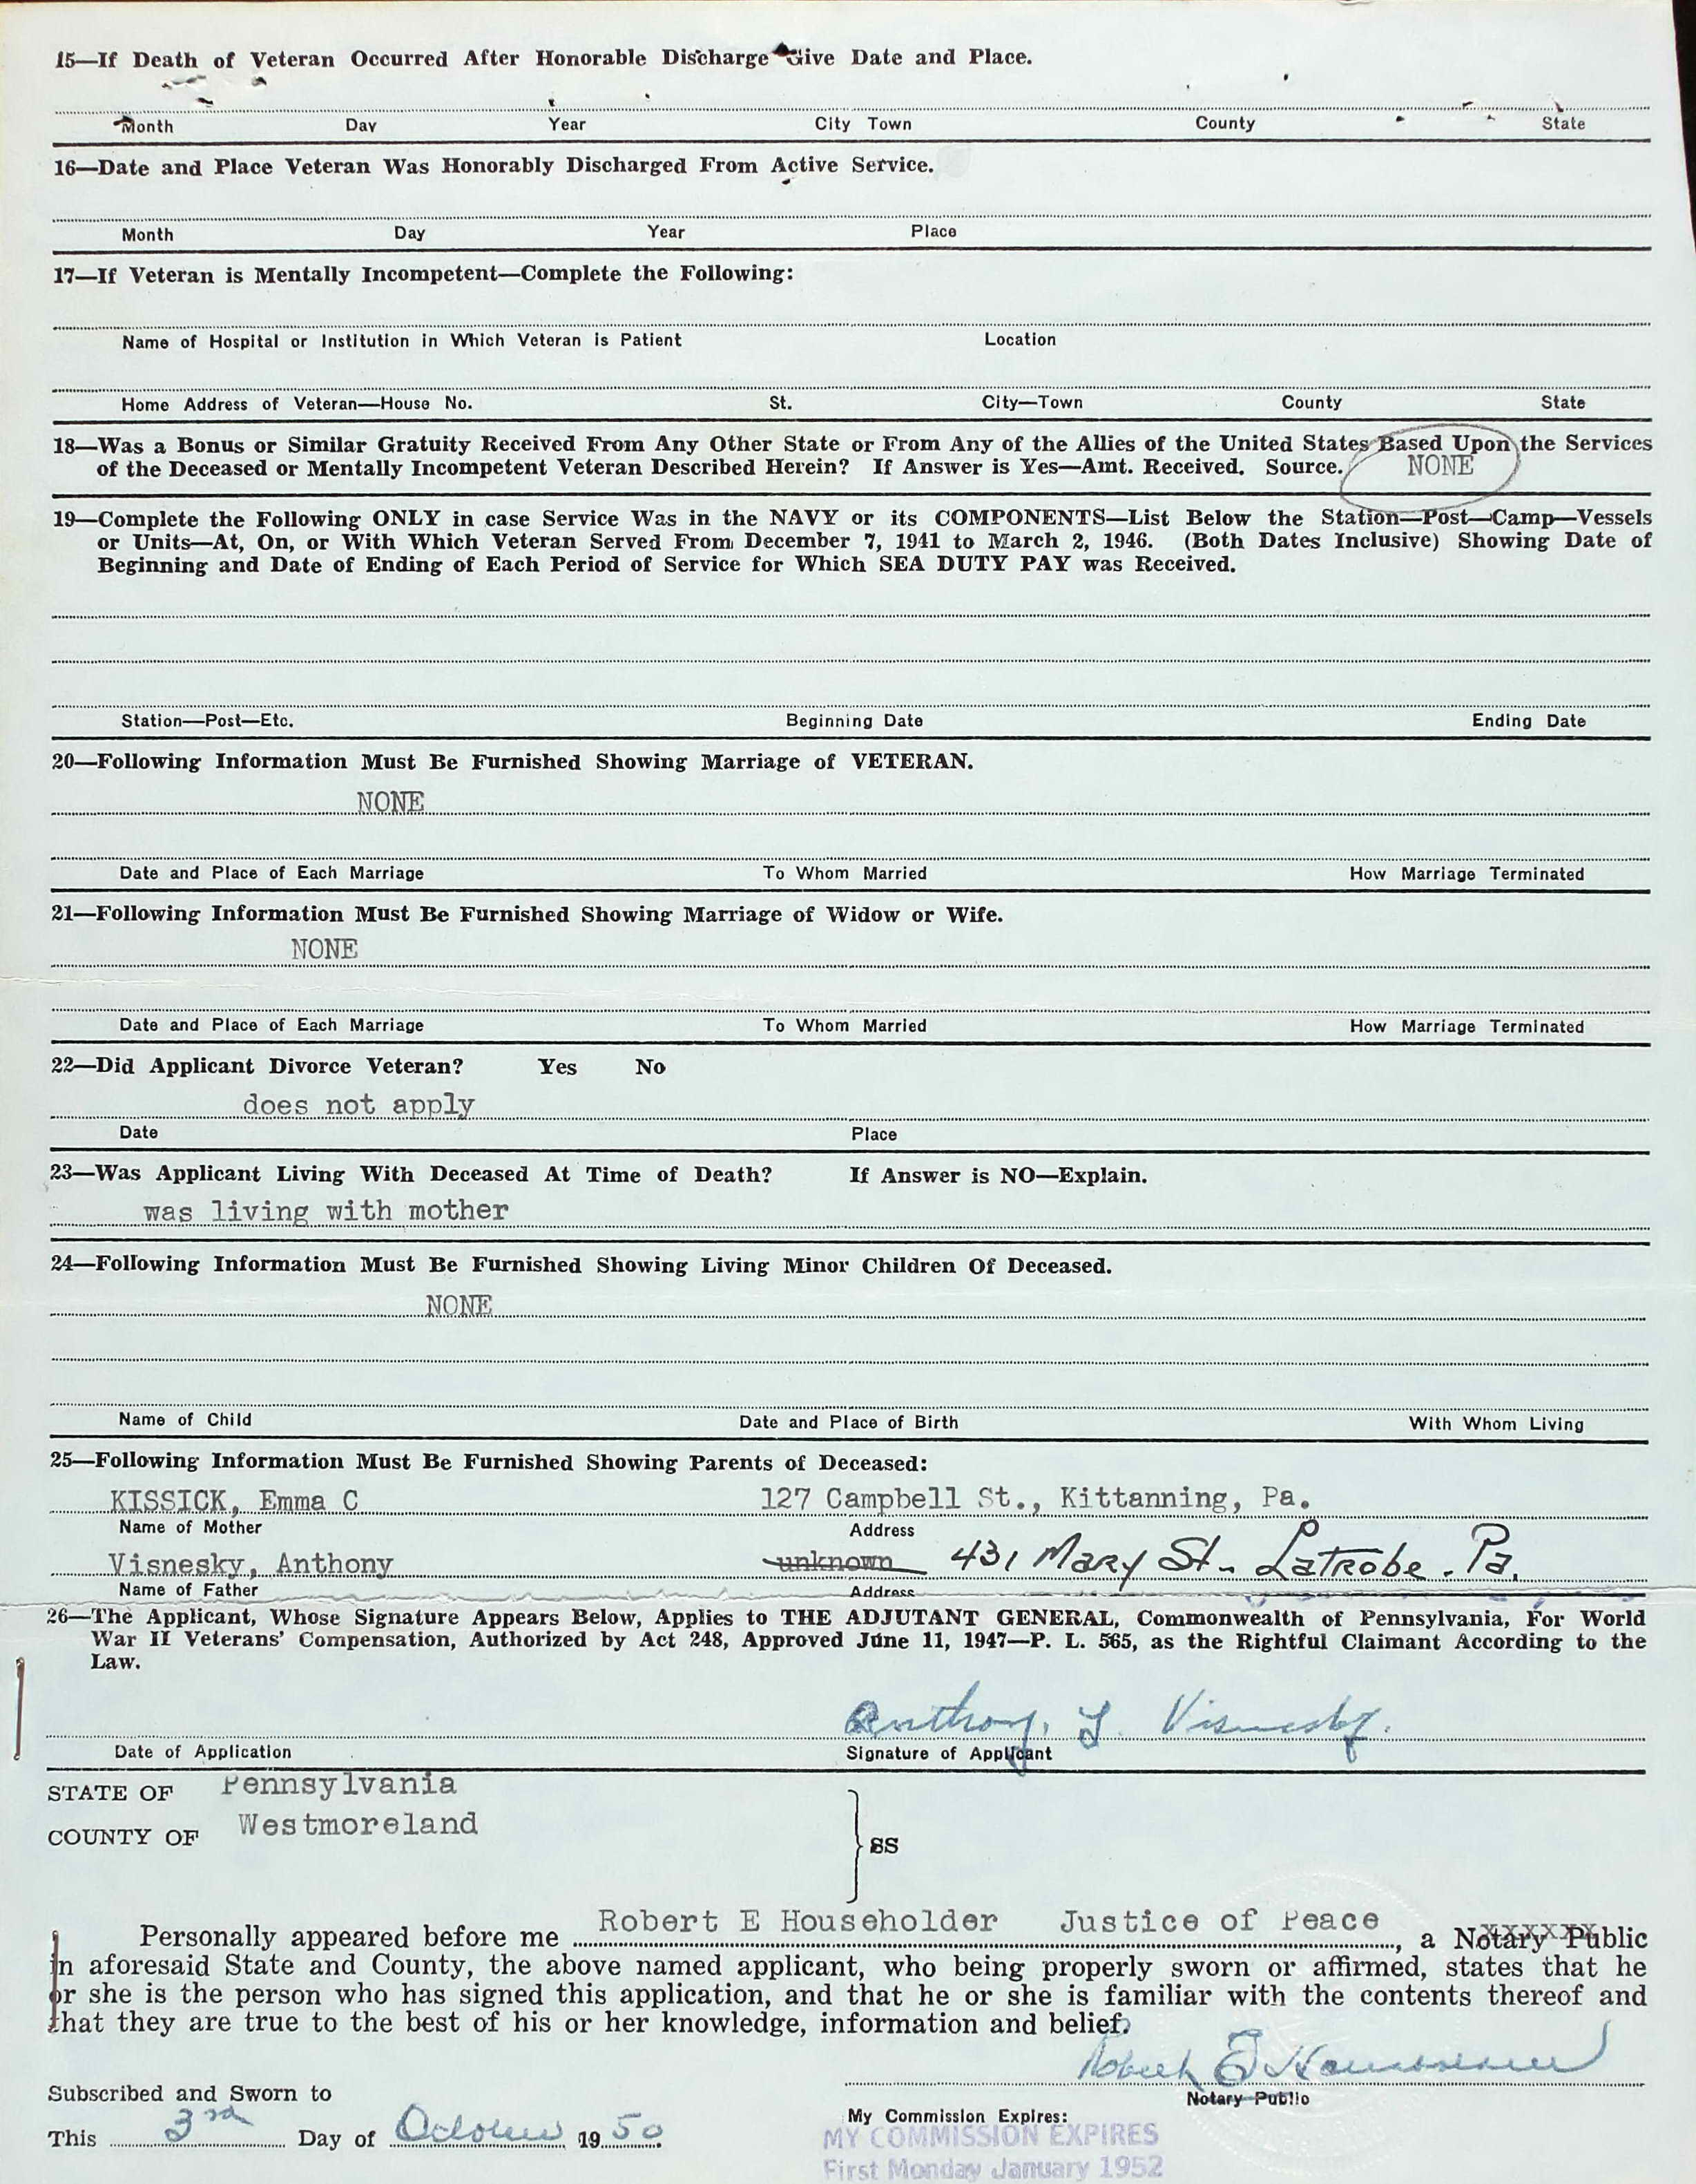 15—If Death of Veteran Occurred After Honorable Discharge Give Date and Place.
Month Day Year City Town County State
16—Date and Place Veteran Was Honorably Discharged From Active Service.
Month Day Year Place
17—If Veteran is Mentally Incompetent—Complete the Following:
Name of Hospital or Institution in Which Veteran is Patient Location
Home Address of Veteran—House No. St. City—Town County State
18—Was a Bonus or Similar Gratuity Received From Any Other State or From Any of the Allies of the United States Based Upon the Services
of the Deceased or Mentally Incompetent Veteran Described Herein? If Answer is Yes—Amt. Received. Source. NONE
19—Complete the Following ONLY in case Service Was in the NAVY or its COMPONENTS—List Below the Station—Post—Camp—Vessels
or Units—At, On, or With Which Veteran Served From December 7, 1941 to March 2, 1946. (Both Dates Inclusive) Showing Date of
Beginning and Date of Ending of Each Period of Service for Which SEA DUTY PAY was Received.
Station—Post—Etc. Beginning Date Ending Date
20—Following Information Must Be Furnished Showing Marriage of VETERAN.
NONE
Date and Place of Each Marriage To Whom Married How Marriage Terminated
21—Following Information Must Be Furnished Showing Marriage of Widow or Wife.
NONE
Date and Place of Each Marriage To Whom Married How Marriage Terminated
22—Did Applicant Divorce Veteran? Yes No
does not apply
Date Place
23—Was Applicant Living With Deceased At Time of Death? If Answer is NO—Explain.
was living with mother
24—Following Information Must Be Furnished Showing Living Minor Children Of Deceased.
NONE
Name of Child Date and Place of Birth With Whom Living
25—Following Information Must Be Furnished Showing Parents of Deceased:
KISSICK, Emma C 127 Campbell St., Kittanning, Pa.
Name of Mother Address
Visnesky, Anthony unknown 431 Mary St- Latrobe. Pa.
Name of Father Address
26—The Applicant, Whose Signature Appears Below, Applies to THE ADJUTANT GENERAL, Commonwealth of Pennsylvania, For World
War II Veterans' Compensation, Authorized by Act 248, Approved June 11, 1947—P. L. 565, as the Rightful Claimant According to the
Law.
Anthony. L. Visnesky.
Date of Application Signature of Applicant
STATE OF Pennsylvania
COUNTY OF Westmoreland
SS
Personally appeared before me Robert E Householder Justice of Peace, a Notary Public
in aforesaid State and County, the above named applicant, who being properly sworn or affirmed, states that he
or she is the person who has signed this application, and that he or she is familiar with the contents thereof and
that they are true to the best of his or her knowledge, information and belief.
Robert E Householder
Notary Public
Subscribed and Sworn to
My Commission Expires:
This 3rd Day of October 1950
MY COMMISSION EXPIRES
First Monday January 1952